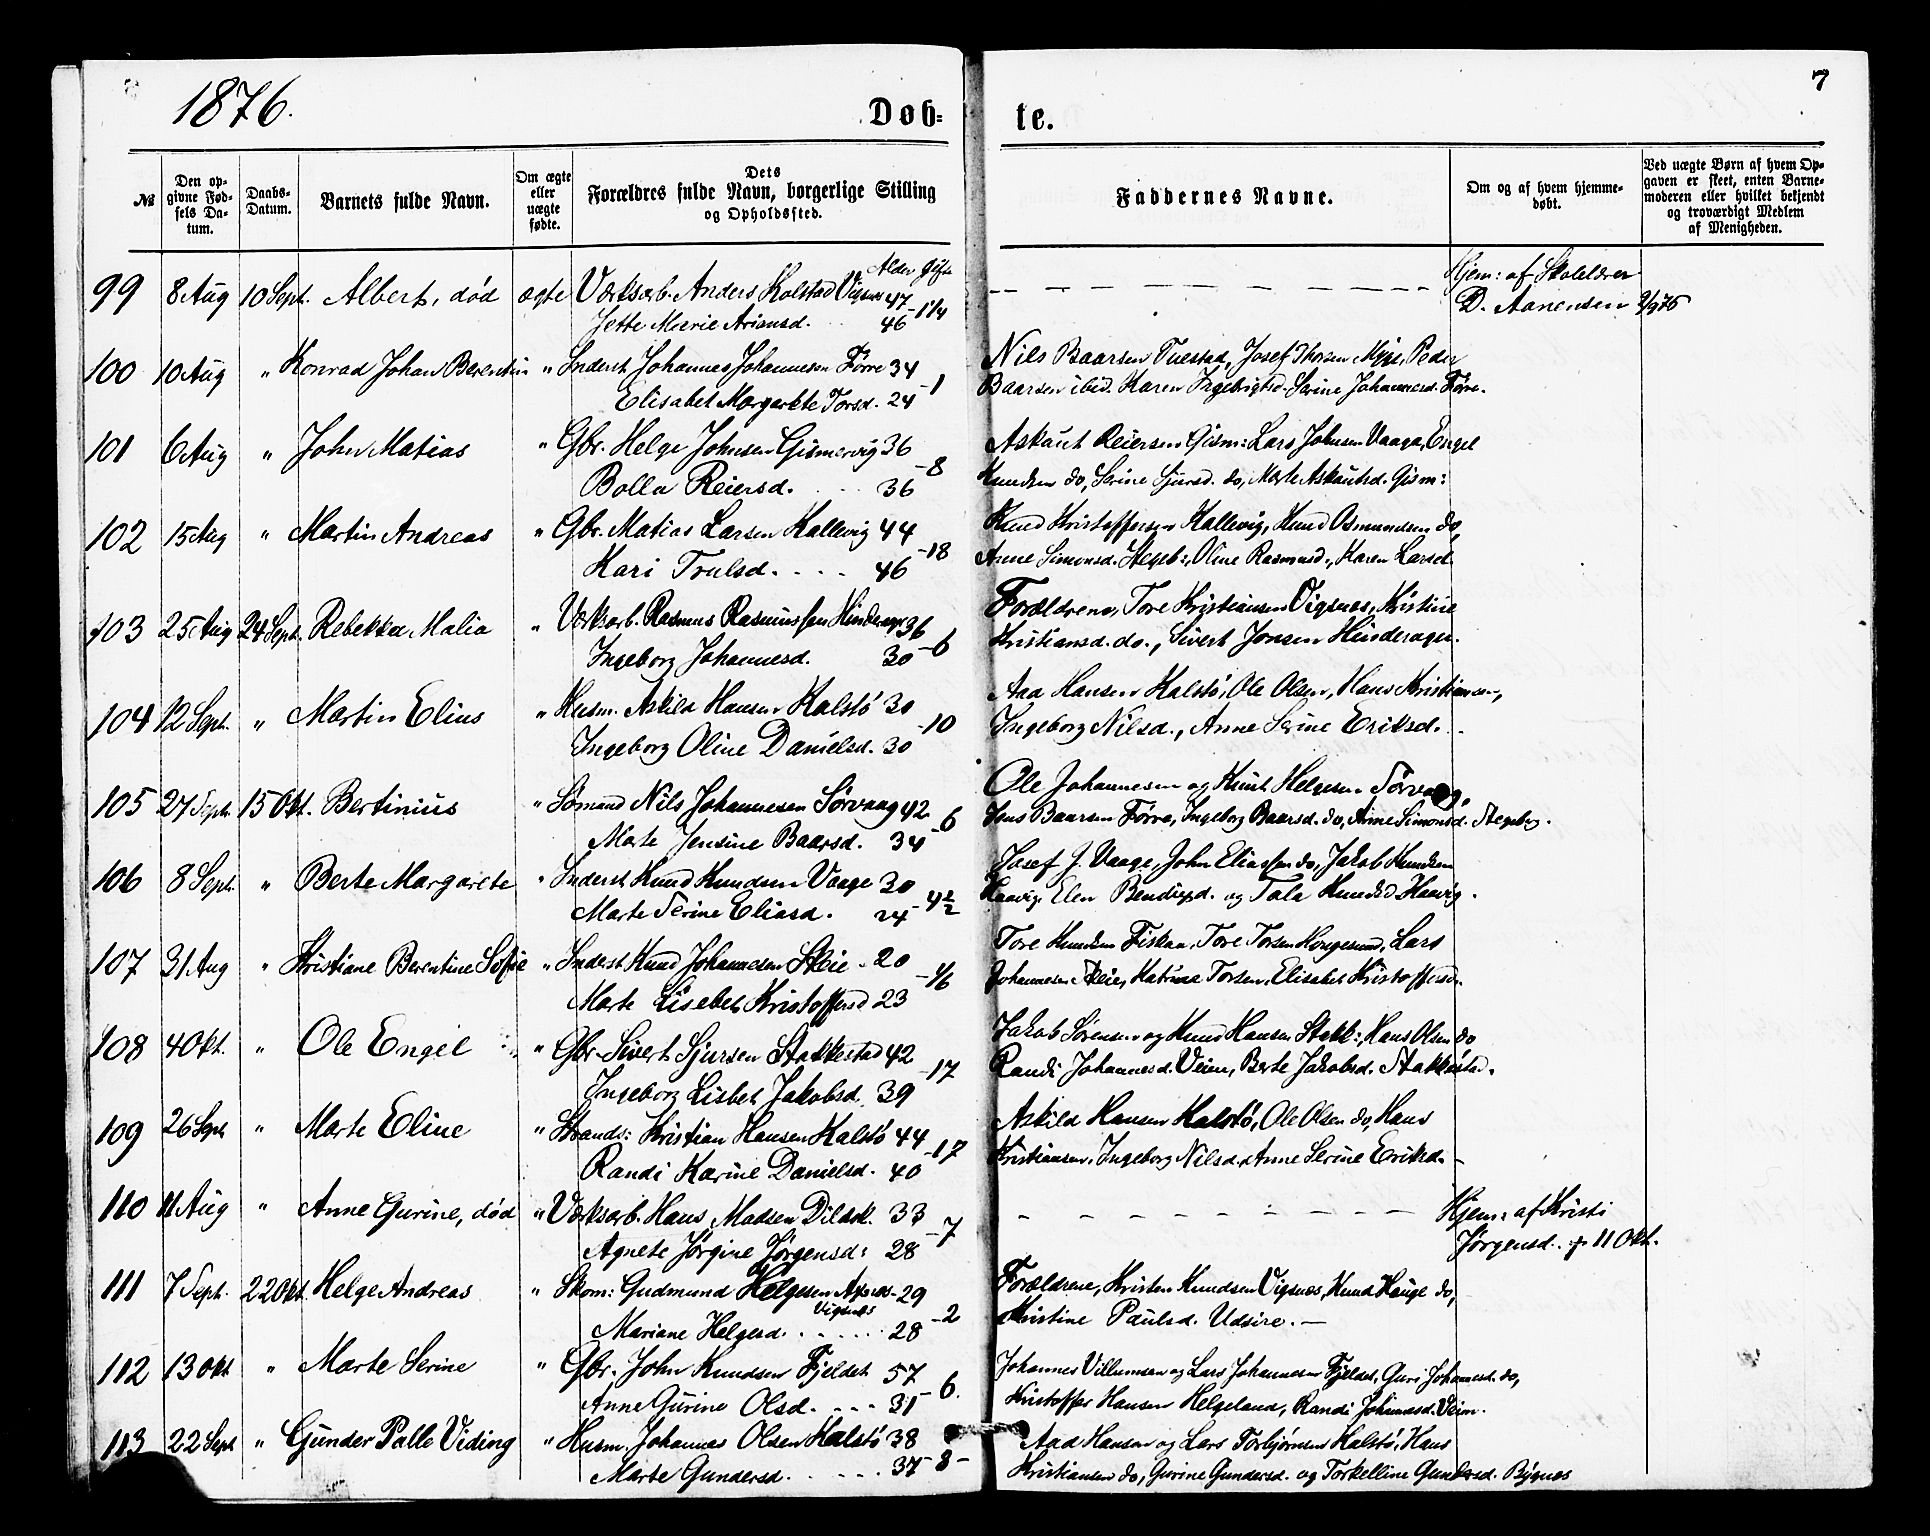 1876.
Døb=
te.
7
№
Den op-
givne Fød-
sels Da-
tum.
Daabs-
Datum.
Barnets fulde Navn.
Om ægte
eller
uægte
fødte.
Dets
Forældres fulde Navn, borgerlige Stilling
og Opholdssted.
Faddernes Navne.
Om og af hvem hjemme-
døbt.
Ved uægte Børn af hvem Op-
gaven er skeet, enten Barne-
moderen eller hvilket bekjendt
og troværdigt Medlem
af Menigheden.
Alder Gifte
99 8 Aug 10 Sept. Albert, død ægte Værksarb. Anders Kolstad Vigsnæs 47 Hjem: af Skolelærer
Jette Marie Ariansd. 46 - 1 1/4 D. Aanensen
100 10 Aug " Konrad Johan Berentin " Inderst Johannes Johannesen Førre 34 Nils Baarsen Tuestad, Josef Thorsen Peder
Elisabet Margarete Torsd. 24 - 1 Baarsen ibid. Karen Ingebrigtsd. Serine Johannesd. Førre.
101 6 Aug " John Matias " Gbr. Helge Johnsen Gismervig 36 Askaut Reiersen Gism: Lars Johnsen Vaage, Engel
Bolla Reiersd. 36 - 8 Knudsen do, Serine Sjursd. do, Marte Askautsd. Gism:
102 15 Aug " Martin Andreas " Gbr. Matias Larsen Kallevig 44 Knud Kristoffersen Kallevig, Knud Osmundsen do,
Kari Trulsd. 46 - 18 Anne Simonsd. Stegb:, Oline Rasmusd., Karen Larsd.
103 25 Aug 24 Sept. Rebekka Malia " Værksarb. Rasmus Rasmussen Hinderager 36 Forældrene, Tore Kristiansen Vigsnæs, Kristine
Ingeborg Johannesd. 30 - 6 Kristiansd. do., Sivert Jonsen Hinderager.
104 12 Sept. " Martin Elius " Husm. Askild Hansen Kalstø 30 Aad Hansen Kalstø, Ole Olsen, Hans Kristiansen,
Ingeborg Oline Danielsd. 30 - 10 Ingeborg Nilsd., Anne Serine Eriksd.
105 27 Sept. 15 Okt. Bertinius " Sømand Nils Johannesen Sørvaag 42 Ole Johannesen og Knut Helgesen Sørvaag,
Marte Jensine Baarsd. 34 - 6 Jens Baarsen Førre, Ingeborg Baarsd. do, Anne Simonsd. Stegberg.
106 8 Sept. " Berte Margarete " Inderst Knud Knudsen Vaage 30 Josef J. Vaage, John Eliassen do, Jakob Knudsen
Marte Serine Eliasd. 24 - 4 1/2 Haavig, Elen Bendixd. og Tala Knudsd Haavig.
107 31 Aug " Kristiane Berentine Sofie " Inderst Knud Johannesen Skeie - 20 Tore Knudsen Fiskaa, Tore Torsen Haugesund, Lars
Marte Lisebet Kristoffersd 23 - 1/6 Johannesen Skeie, Katrine Torsen, Elisabet Kristoffersd.
108 4 Okt. " Ole Engel " Gbr. Sivert Sjursen Stakkestad 42 Jakob Sørensen og Knud Hansen Stakk:, Hans Olsen do
Ingeborg Lisbet Jakobsd. 39 - 17 Randi Johannesd. Veim, Berte Jakobsd. Stakkestad.
109 26 Sept " Marte Eline " Strands: Kristian Hansen Kalstø 44 Askild Hansen Kalstø, Ole Olsen do, Hans
Randi Karine Danielsd. 40 - 17 Kristiansen, Ingeborg Nilsd., Anne Serine Eriksd.
110 11 Aug " Anne Gurine, død " Værksarb. Hans Madsen 33 Hjem: af Kristi
Agnete Jørgine Jørgensd: 28 - 7 Jørgensd. + 11 Okt.
111 7 Sept. 22 Okt. Helge Andreas " Skom: Gudmund Helgesen 29 Forældrene, Kristen Knudsen Vigsnæs, Knud Hauge do,
Vigsnæs
Mariane Helgesd. 28 - 2 Kristine Paulsd. Udsire.
112 13 Okt " Marte Serine " Gbr. John Knudsen Fjeldet 57 Johannes Villumsen og Lars Johannesen Fjeldet, Guri Johannesd. do,
Anne Gurine Olsd. 31 - 6. Kristoffer Hansen Helgeland, Randi Johannesd. Veim.
113 22 Sept " Gunder Palle Viding " Husm. Johannes Olsen Kalstø 38 Aad Hansen og Lars Torbjørnsen Kalstø, Hans
Marte Gundersd. 37 - 8 - Kristiansen do, Gurine Gundersd. og Torkelline Gundersd. Bygnes